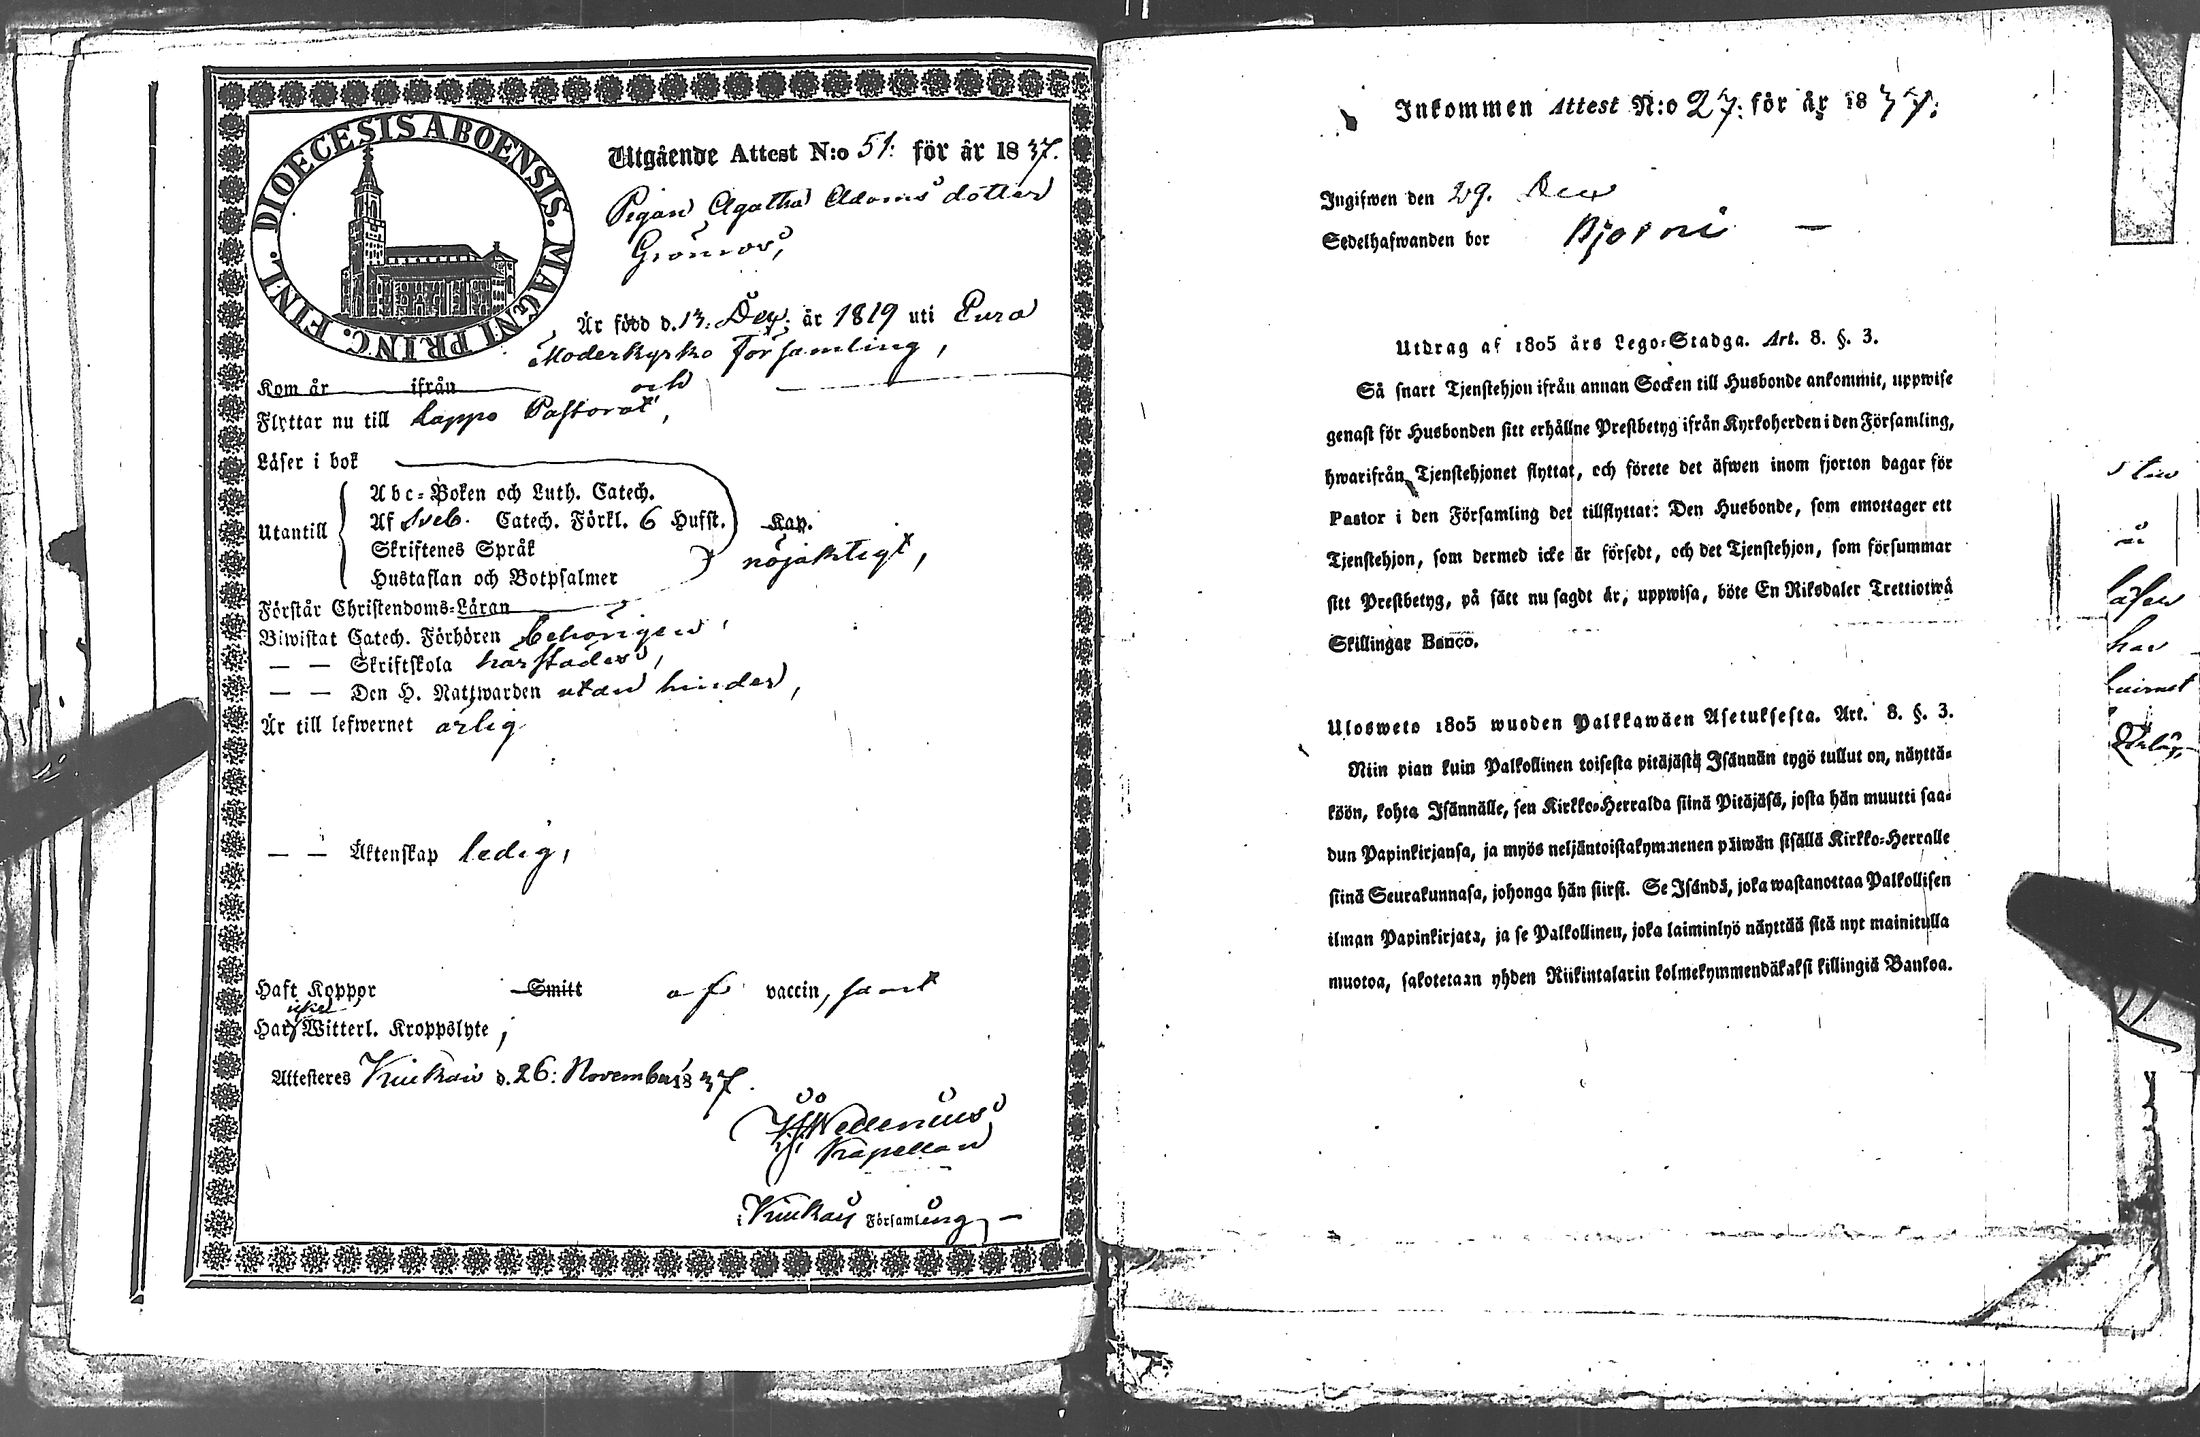 DIOECESIS ABOENSIS. MAGNI PRINC. FINL.
Utgående Attest N:o 51: för år 1837.
Pigan Agatha Adamsdotter
Grönroos,
Är född d. 13. Dec; år 1819 uti Eura
Moderkyrko församling,
Kom år ifrån och
Flyttar nu till Lappo Pastorat,
Läser i bok
Utantill
Abc-Boken och Luth. Catech.
Af Sveb. Catech. Förkl. 6 Hufst. Kap.
Skriftenes Språk
Hustaflan och Botpsalmer
nöjaktigt,
Förstår Christendoms-Läran
Biwistat Catech. Förhören behörigen
— — Skriftskola härstädes,
— — Den H. Nattwarden utan hinder,
Är till lefwernet ärlig
— — Äktenskap ledig,
Haft Koppor Smitt af vaccin, samt
icke
Har Witterl. Kroppslyte,
Attesteres Kiukais d. 26: November 1837.
Kapellan
i Kiukais Församling —
Inkommen Attest N:o 27: för år 1837.
Ingifwen den 29. Dec
Sedelhafwanden bor Bjorni —
Utdrag af 1805 års Lego-Stadga. Art. 8. §. 3.
Så snart Tjenstehjon ifrån annan Socken till Husbonde ankommit, uppwise
genast för Husbonden sitt erhållne Prestbetyg ifrån Kyrkoherden i den Församling,
hwarifrån Tjenstehjonet flyttat, och förete det äfwen inom fjorton dagar för
Pastor i den Församling det tillflyttat: Den Husbonde, som emottager ett
Tjenstehjon, som dermed icke är försedt, och det Tjenstehjon, som försummar
sitt Prestbetyg, på sätt nu sagdt är, uppwisa, böte En Riksdaler Trettiotwå
Skillingar Banco.
Ulosweto 1805 wuoden Palkkawäen Asetuksesta. Art. 8. §. 3.
Niin pian kuin Palkollinen toisesta pitäjästä Isännän tygö tullut on, näyttä-
köön, kohta Isännälle, sen Kirkko-Herralda siinä Pitäjäsä, josta hän muutti saa-
dun Papinkirjansa, ja myös neljäntoistakymmenen päiwän sisällä Kirkko-Herralle
siinä Seurakunnasa, johonga hän siirsi. Se Isändä, joka wastanottaa Palkollisen
ilman Papinkirjata, ja se Palkollinen, joka laiminlyö näyttää sitä nyt mainitulla
muotoa, sakotetaan yhden Riikintalarin kolmekymmendäkaksi killingiä Bankoa.